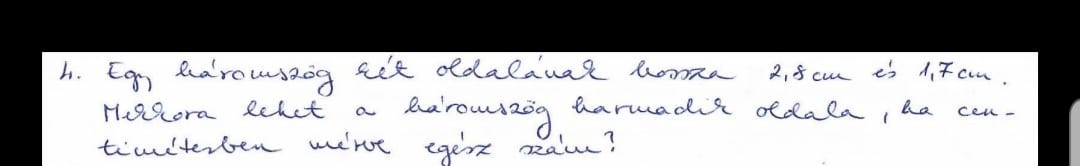 4. Egy háromszög két oldalának hossza 2,8 cm és 1,7 cm.
Mekkora lehet a háromszög harmadik oldala, ha cen-
timéterben mérve egész szám?